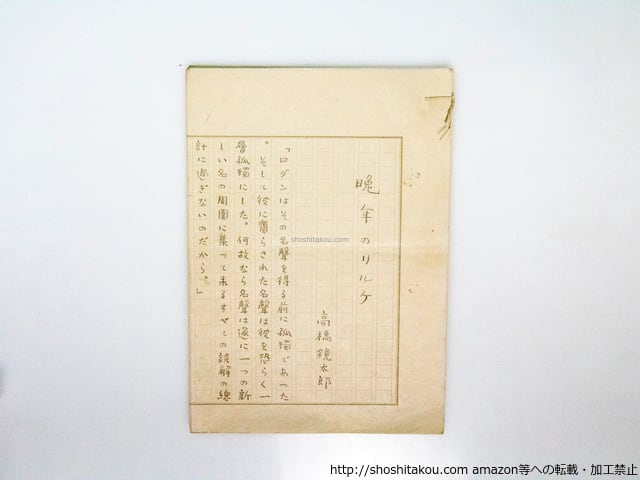 晩年のリルケ
高橋鏡太郎
「ロダンはその名聲を得る前に孤獨であった
。そして彼に齎らされた名聲は彼を恐らく一
層孤獨にした。何故なら名聲は遂に一つの新
しい名の周圍に集って来るすべての誤解の總
計に過ぎないのだから。」
shoshitakou.com
http://shoshitakou.com amazon等への転載・加工禁止